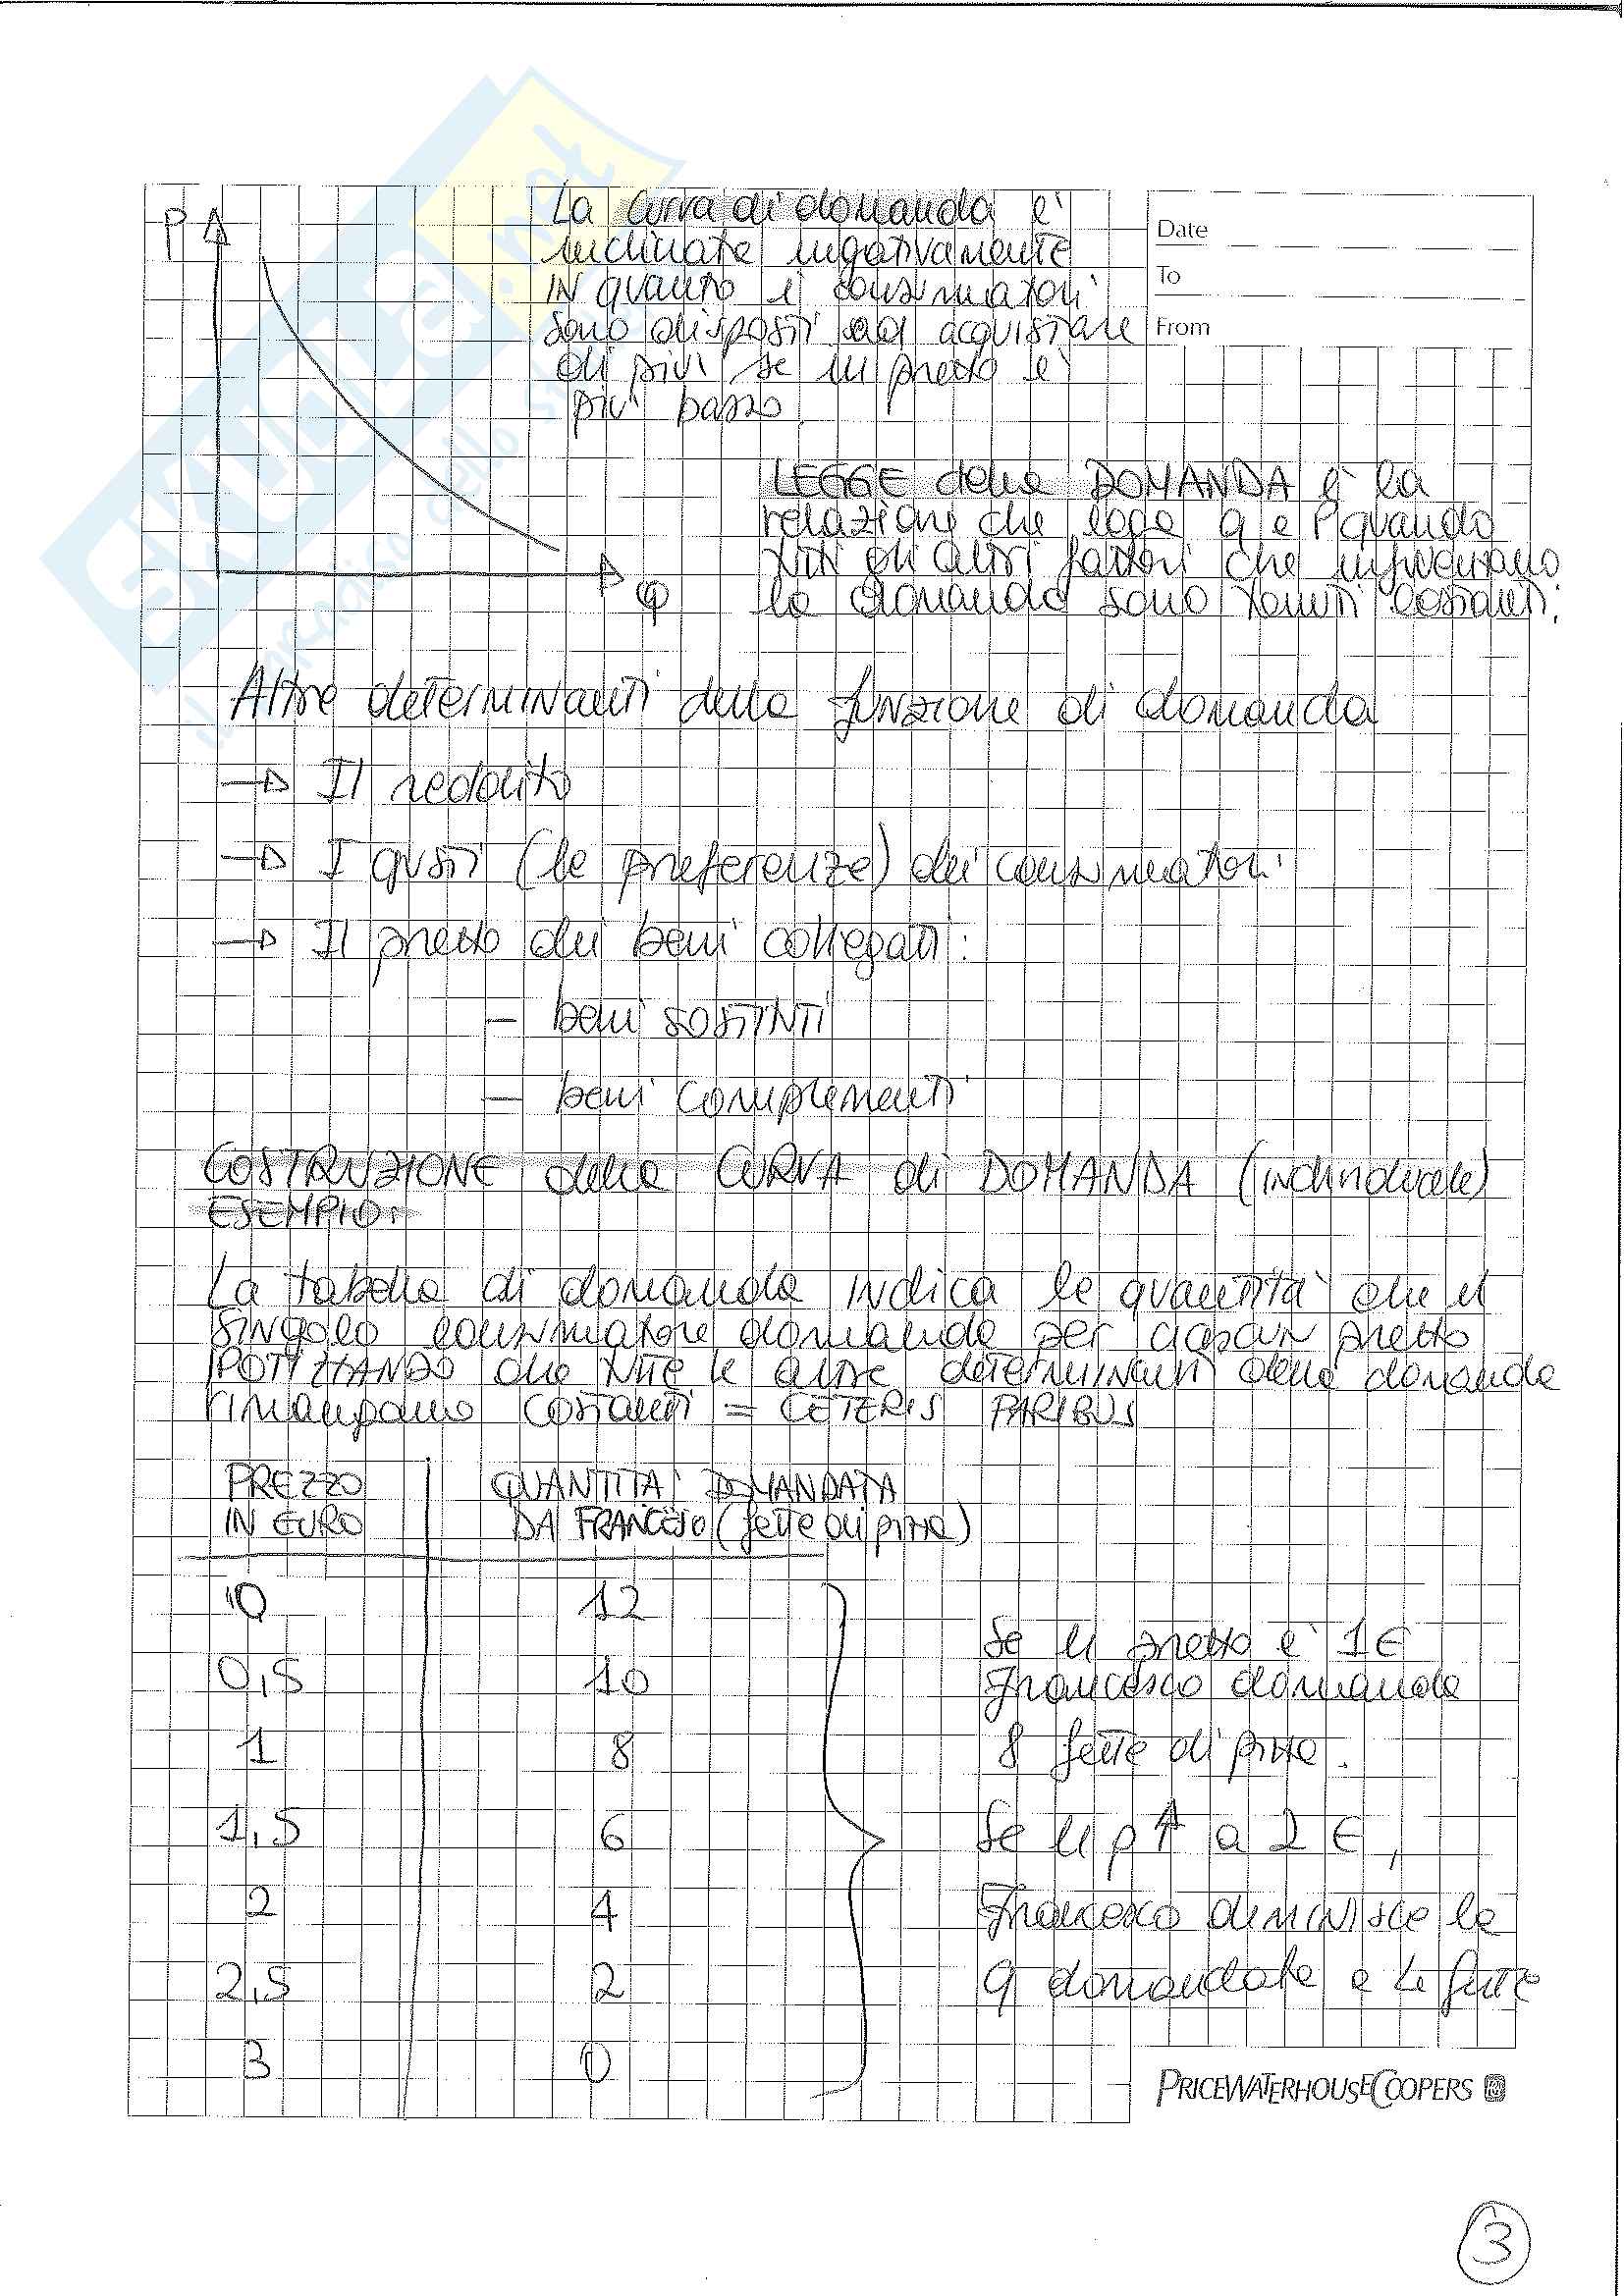 P
La curva di domanda è
inclinata negativamente
IN quanto i consumatori
sono disposti ad acquistare
di più se il prezzo è
più basso.
Date
To
From
LEGGE della DOMANDA è la
relazione che lega q e P quando
tutti gli altri fattori che influenzano
la domanda sono tenuti costanti.
Q
Altre determinanti della funzione di domanda
→ Il reddito
→ I gusti (le preferenze) dei consumatori
→ Il prezzo dei beni collegati:
- beni sostituti
- beni complementi
COSTRUZIONE della CURVA di DOMANDA (individuale)
ESEMPIO:
La tabella di domanda indica le quantità che il
singolo consumatore domanda per ciascun prezzo
IPOTIZZANDO che tutte le altre determinanti della domanda
rimangano costanti = CETERIS PARIBUS
PREZZO IN EURO
QUANTITA' DOMANDATA DA FRANCESCO (fette di pizza)
0 12
0,5 10
1 8
1,5 6
2 4
2,5 2
3 0
Se il prezzo è 1€
Francesco domanda
8 fette di pizza.
Se il p ↑ a 2 €,
Francesco diminuisce la
q domandata a 4 fette
PRICEWATERHOUSECOOPERS
3